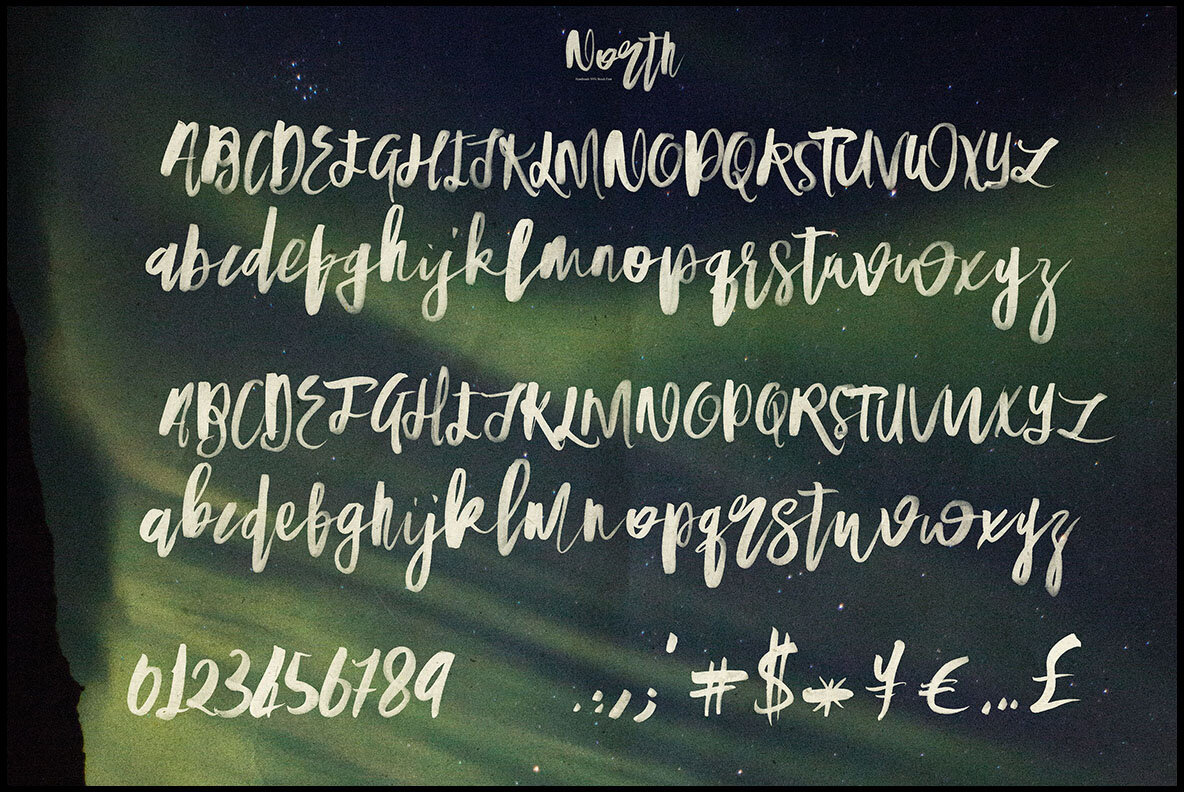 North
Handmade SVG Brush Font
ABCDEFGHIJKLMNOPQRSTUVWXYZ
abcdefghijklmnopqrstuvwxyz
ABCDEFGHIJKLMNOPQRSTUVWXYZ
abcdefghijklmnopqrstuvwxyz
0123456789 .:,; ' # $ * ¥ € ... £